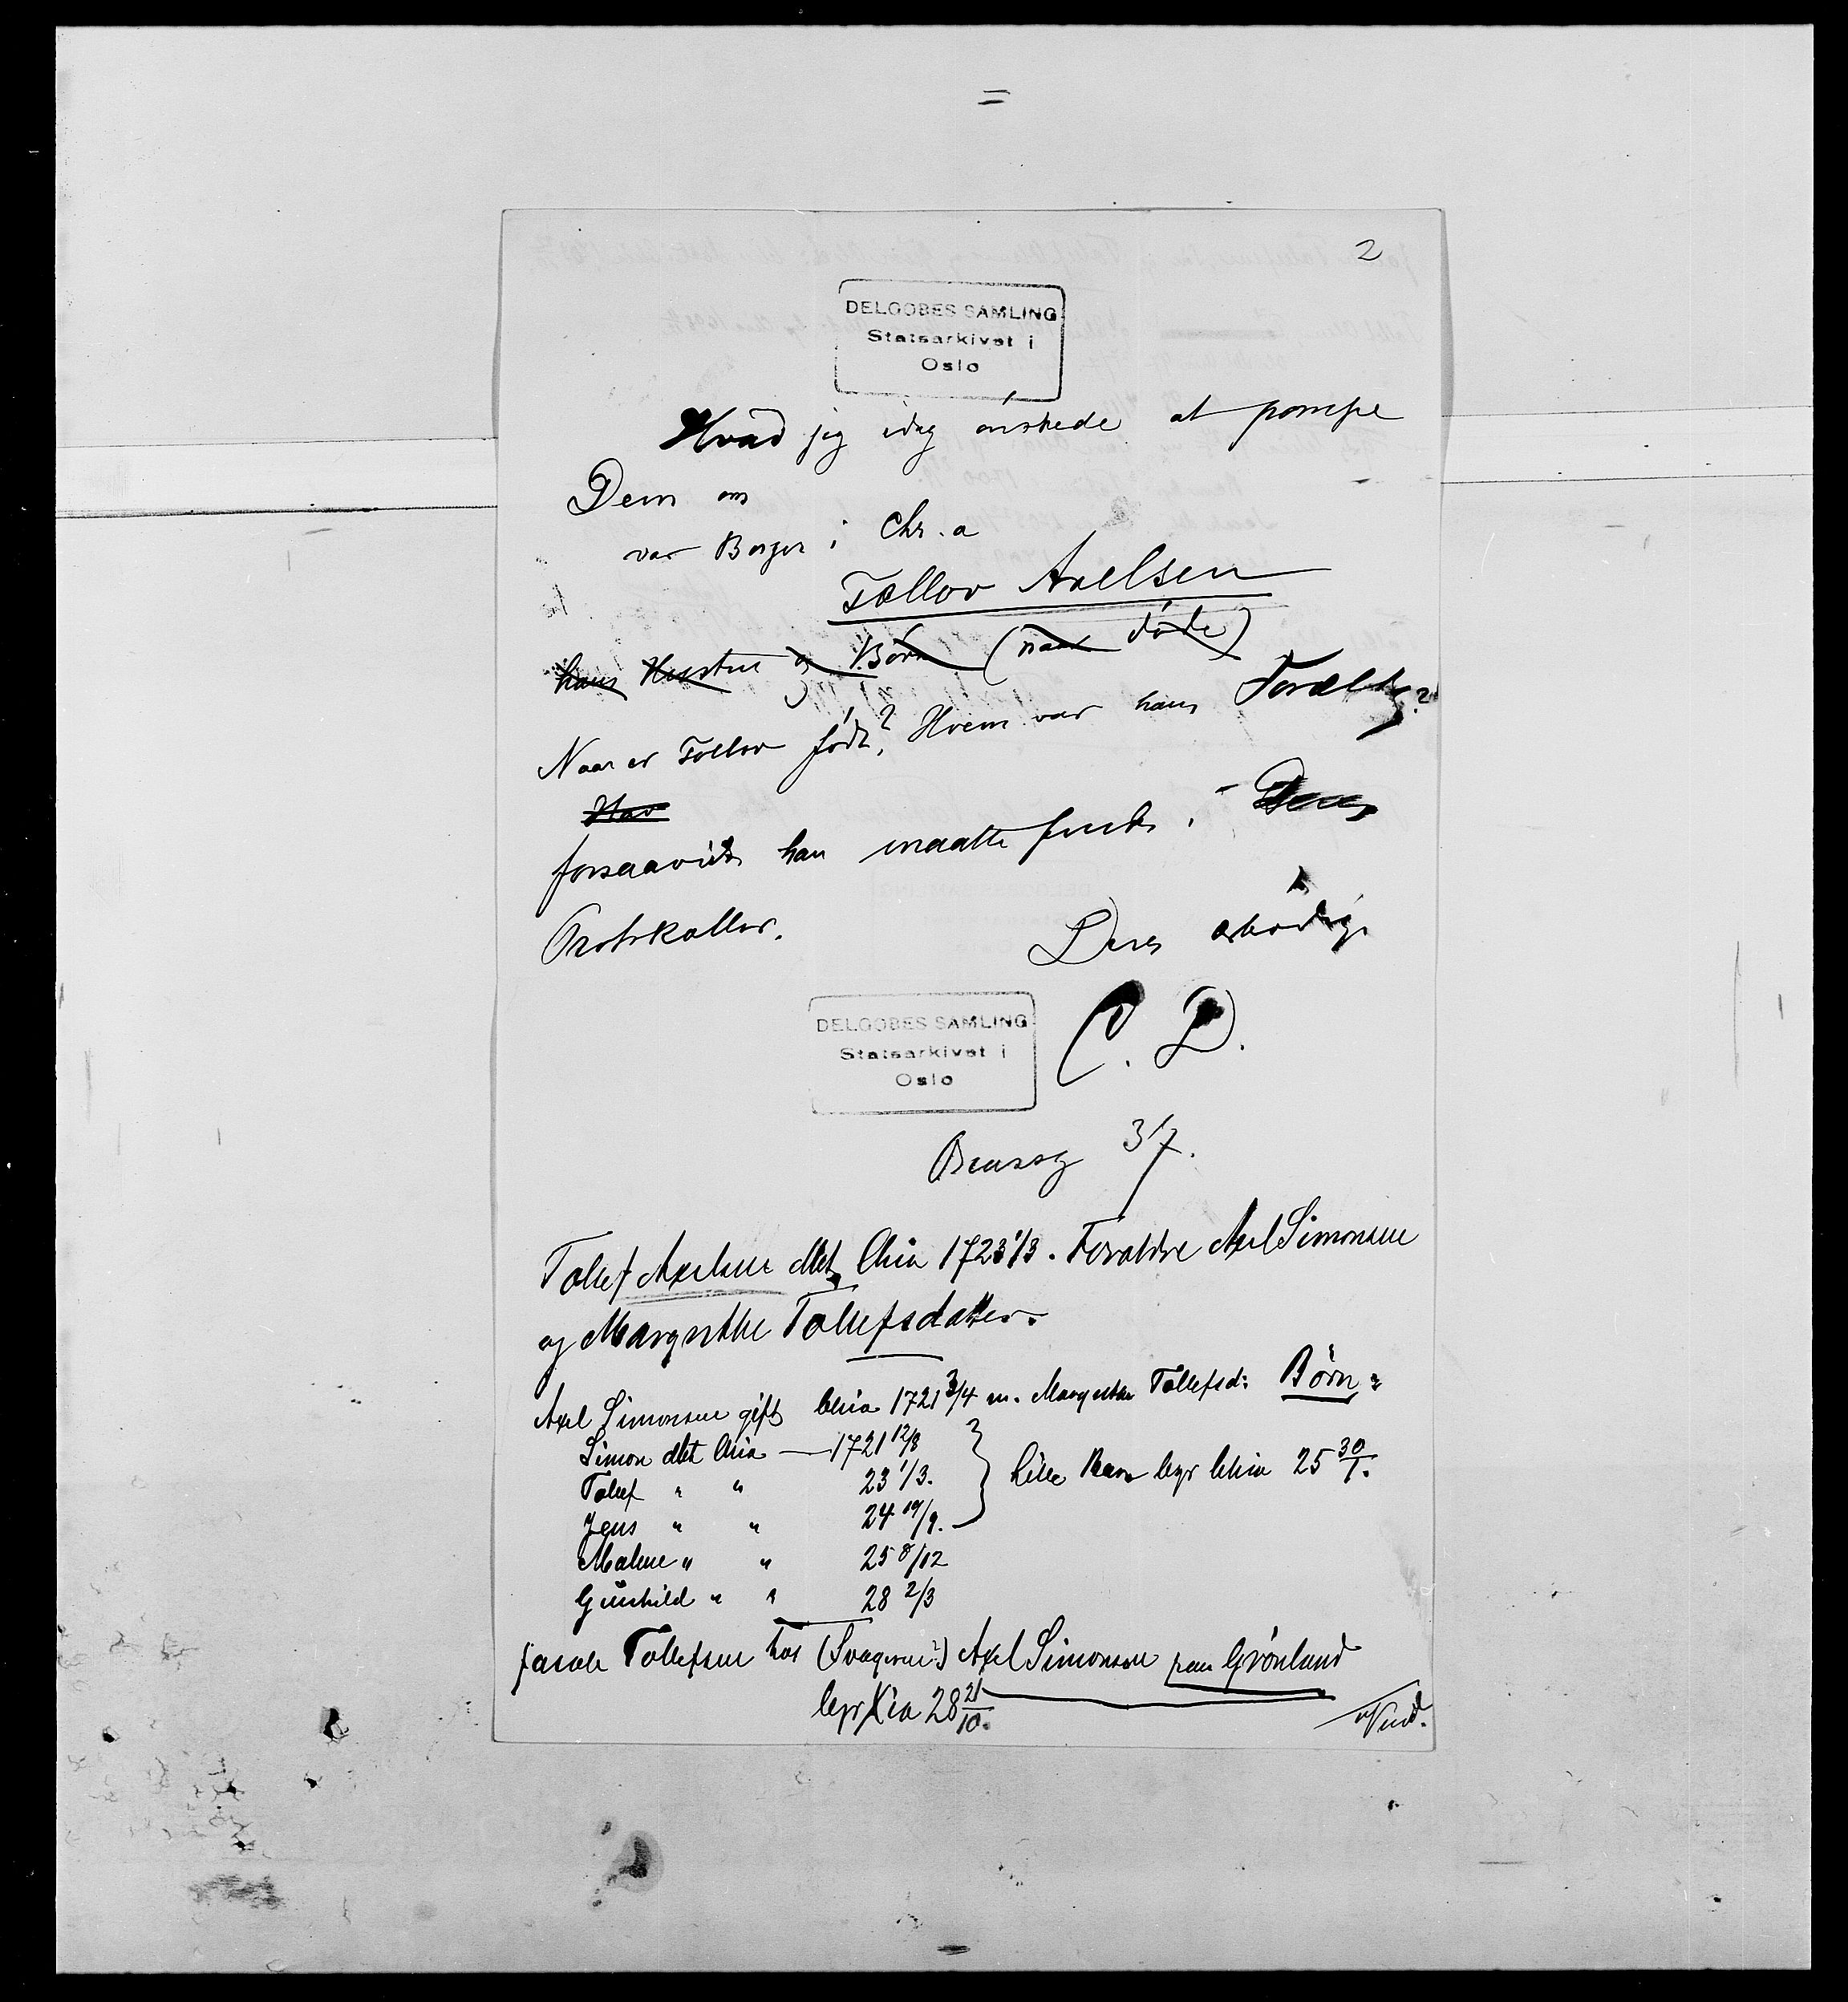 2
DELGOBES SAMLING
Statsarkivet i
Oslo
Hvad jeg idag ønskede at pompe
Dem om
var Borger i Chr.a
Tollov Axelsen
hans Hustru og Børn (naar døde)
Naar er Tollov født? Hvem var hans Forældre?
Har
forsaavidt han maatte findes i Deres
Protokoller.
Deres ærbødige
C. D.
DELGOBES SAMLING
Statsarkivet i
Oslo
37.
Tollef Axelsen dbt Chria 1723 1/3. Forældre Axel Simonsen
og Margrethe Tollefsdatter.
Axel Simonsen gift Chria 1721 3/4 m. Margrethe Tollefsd: Børn:
Simon dbt Chria — 1721 12/8
Tollef " " 23 1/3.
Jens " " 24 19/9.
lille Barn begr Chria 25 30/1.
Malene " " 25 8/12
Gunhild " " 28 2/3
Jacob Tollefsen hos (Svogeren?) Axel Simonsen paa Grønland
begr Xia 28 21/10.
Vend.